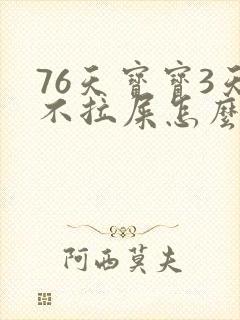 76天寶寶3天
不拉屎怎麼
阿西莫夫